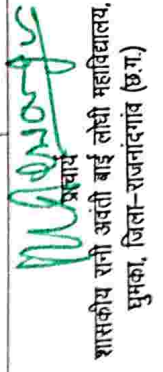 प्राचार्य
शासकीय रानी अवंती बाई लोधी महाविद्यालय,
घुमका, जिला–राजनांदगांव (छ.ग.)